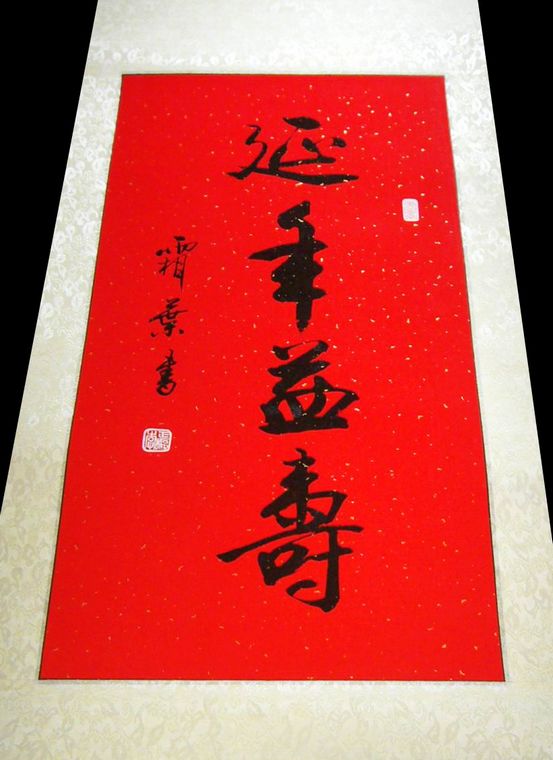 延年益壽
霜葉書